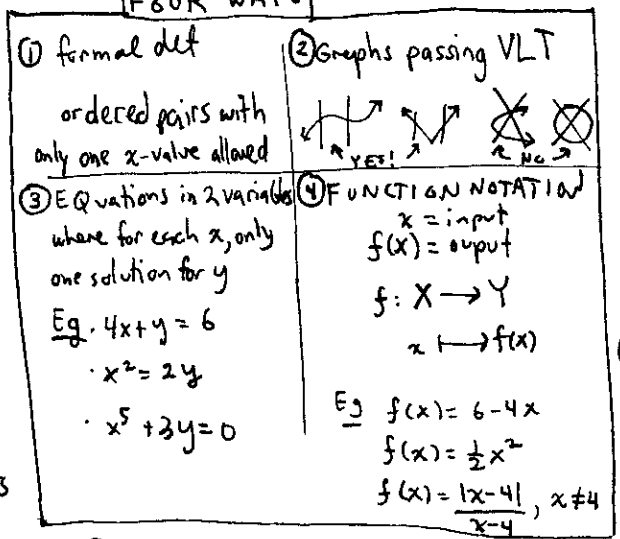 FOUR WAYS
① formal def
ordered pairs with
only one x-value allowed
② Graphs passing VLT
YES!
NO
③ EQuations in 2 variables
where for each x, only
one solution for y
Eg. 4x+y = 6
· x² = 2y
· x⁵ + 3y = 0
④ FUNCTION NOTATION
x = input
f(x) = ouput
f: X → Y
x ↦ f(x)
Eg f(x) = 6-4x
f(x) = ½x²
f(x) = |x-4| / x-4, x≠4
s